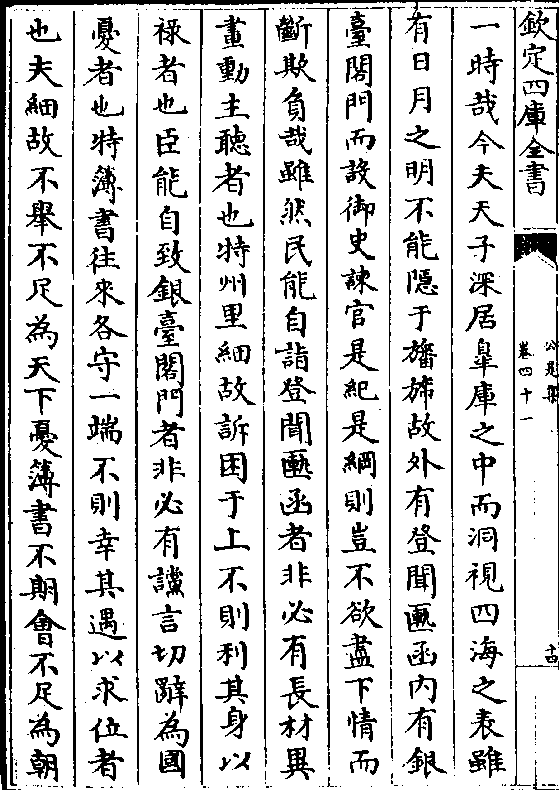 欽定四庫全書
公是集
卷四十一
十四
一時哉今夫天子深居臯庫之中而洞視四海之表雖
有日月之明不能隱于旛斾故外有登聞匭函内有銀
臺閤門而設御史諫官是紀是綱則豈不欲盡下情而
斷欺負哉雖然民能自詣登聞匭函者非必有長材異
畫動主聽者也特州里細故訴困于上不則利其身以
禄者也臣能自致銀臺閤門者非必有讜言切辭為國
憂者也特簿書往來各守一端不則幸其遇以求位者
也夫細故不舉不足為天下憂簿書不期會不足為朝